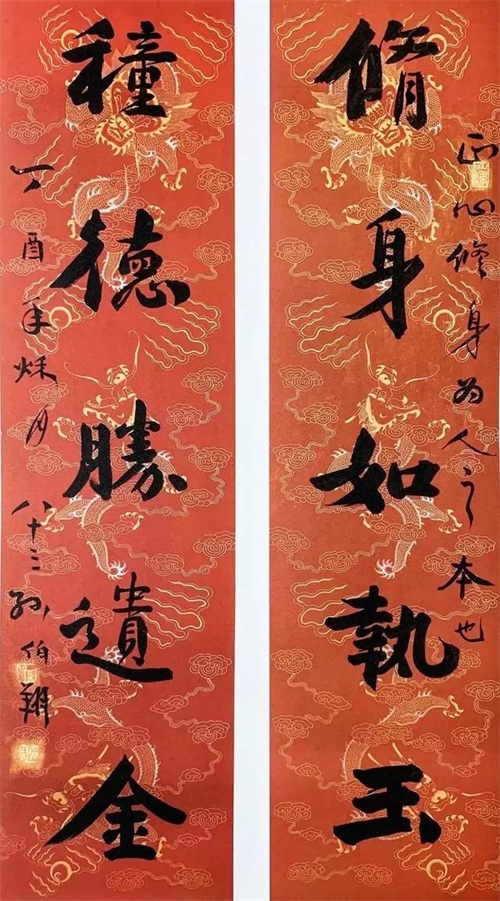 脩身如執玉
正心修身為人之本也
穜德勝遺金
丁酉年秌月
八十三孙伯翔